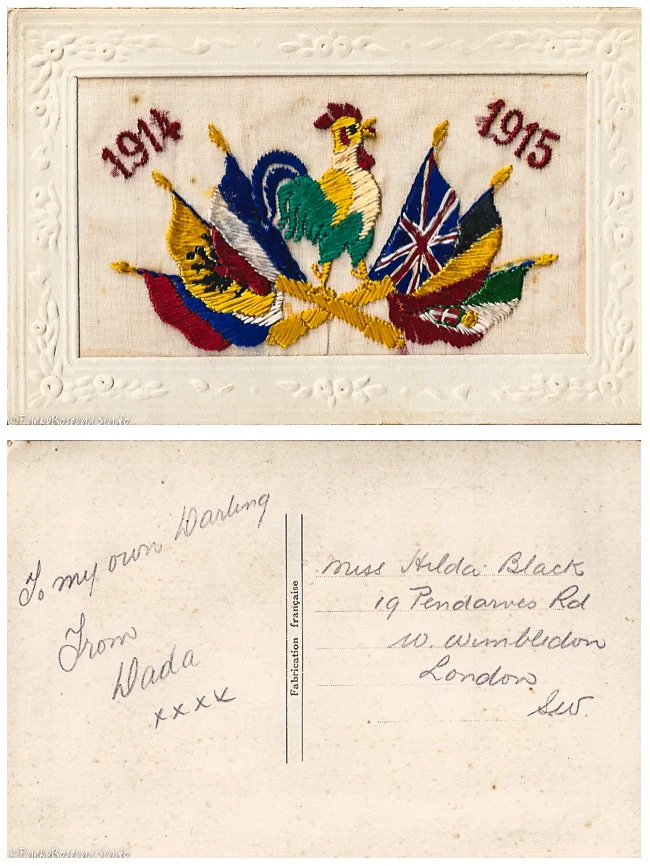 1914
1915
To my own Darling
From
Dada
xxxx
Fabrication française
Miss Hilda Black
19 Pendarves Rd
W. Wimbledon
London
S.W.